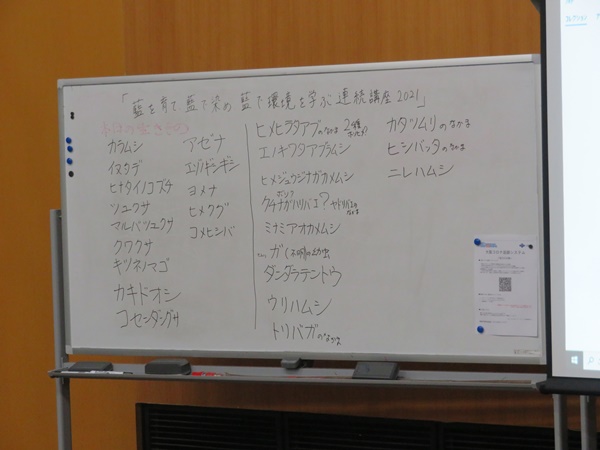 「藍を育て 藍で染め 藍で環境を学ぶ 連続講座2021」
カラムシ
イヌタデ
ヒナタイノコズチ
ツユクサ
マルバツユクサ
クワクサ
キツネノマゴ
カキドオシ
コセンダングサ
アゼナ
エゾノギシギシ
ヨメナ
ヒメクグ
コメヒシバ
ヒメヒラタアブのなかま 2種
エノキワタアブラムシ
ヒメジュウジナガカメムシ
クチナガハリバエ? ヤドリバエのなかま
ミナミアオカメムシ
ガ(不明)の幼虫
ダンダラテントウ
ウリハムシ
トリバガのなかま
カタツムリのなかま
ヒシバッタのなかま
ニレハムシ